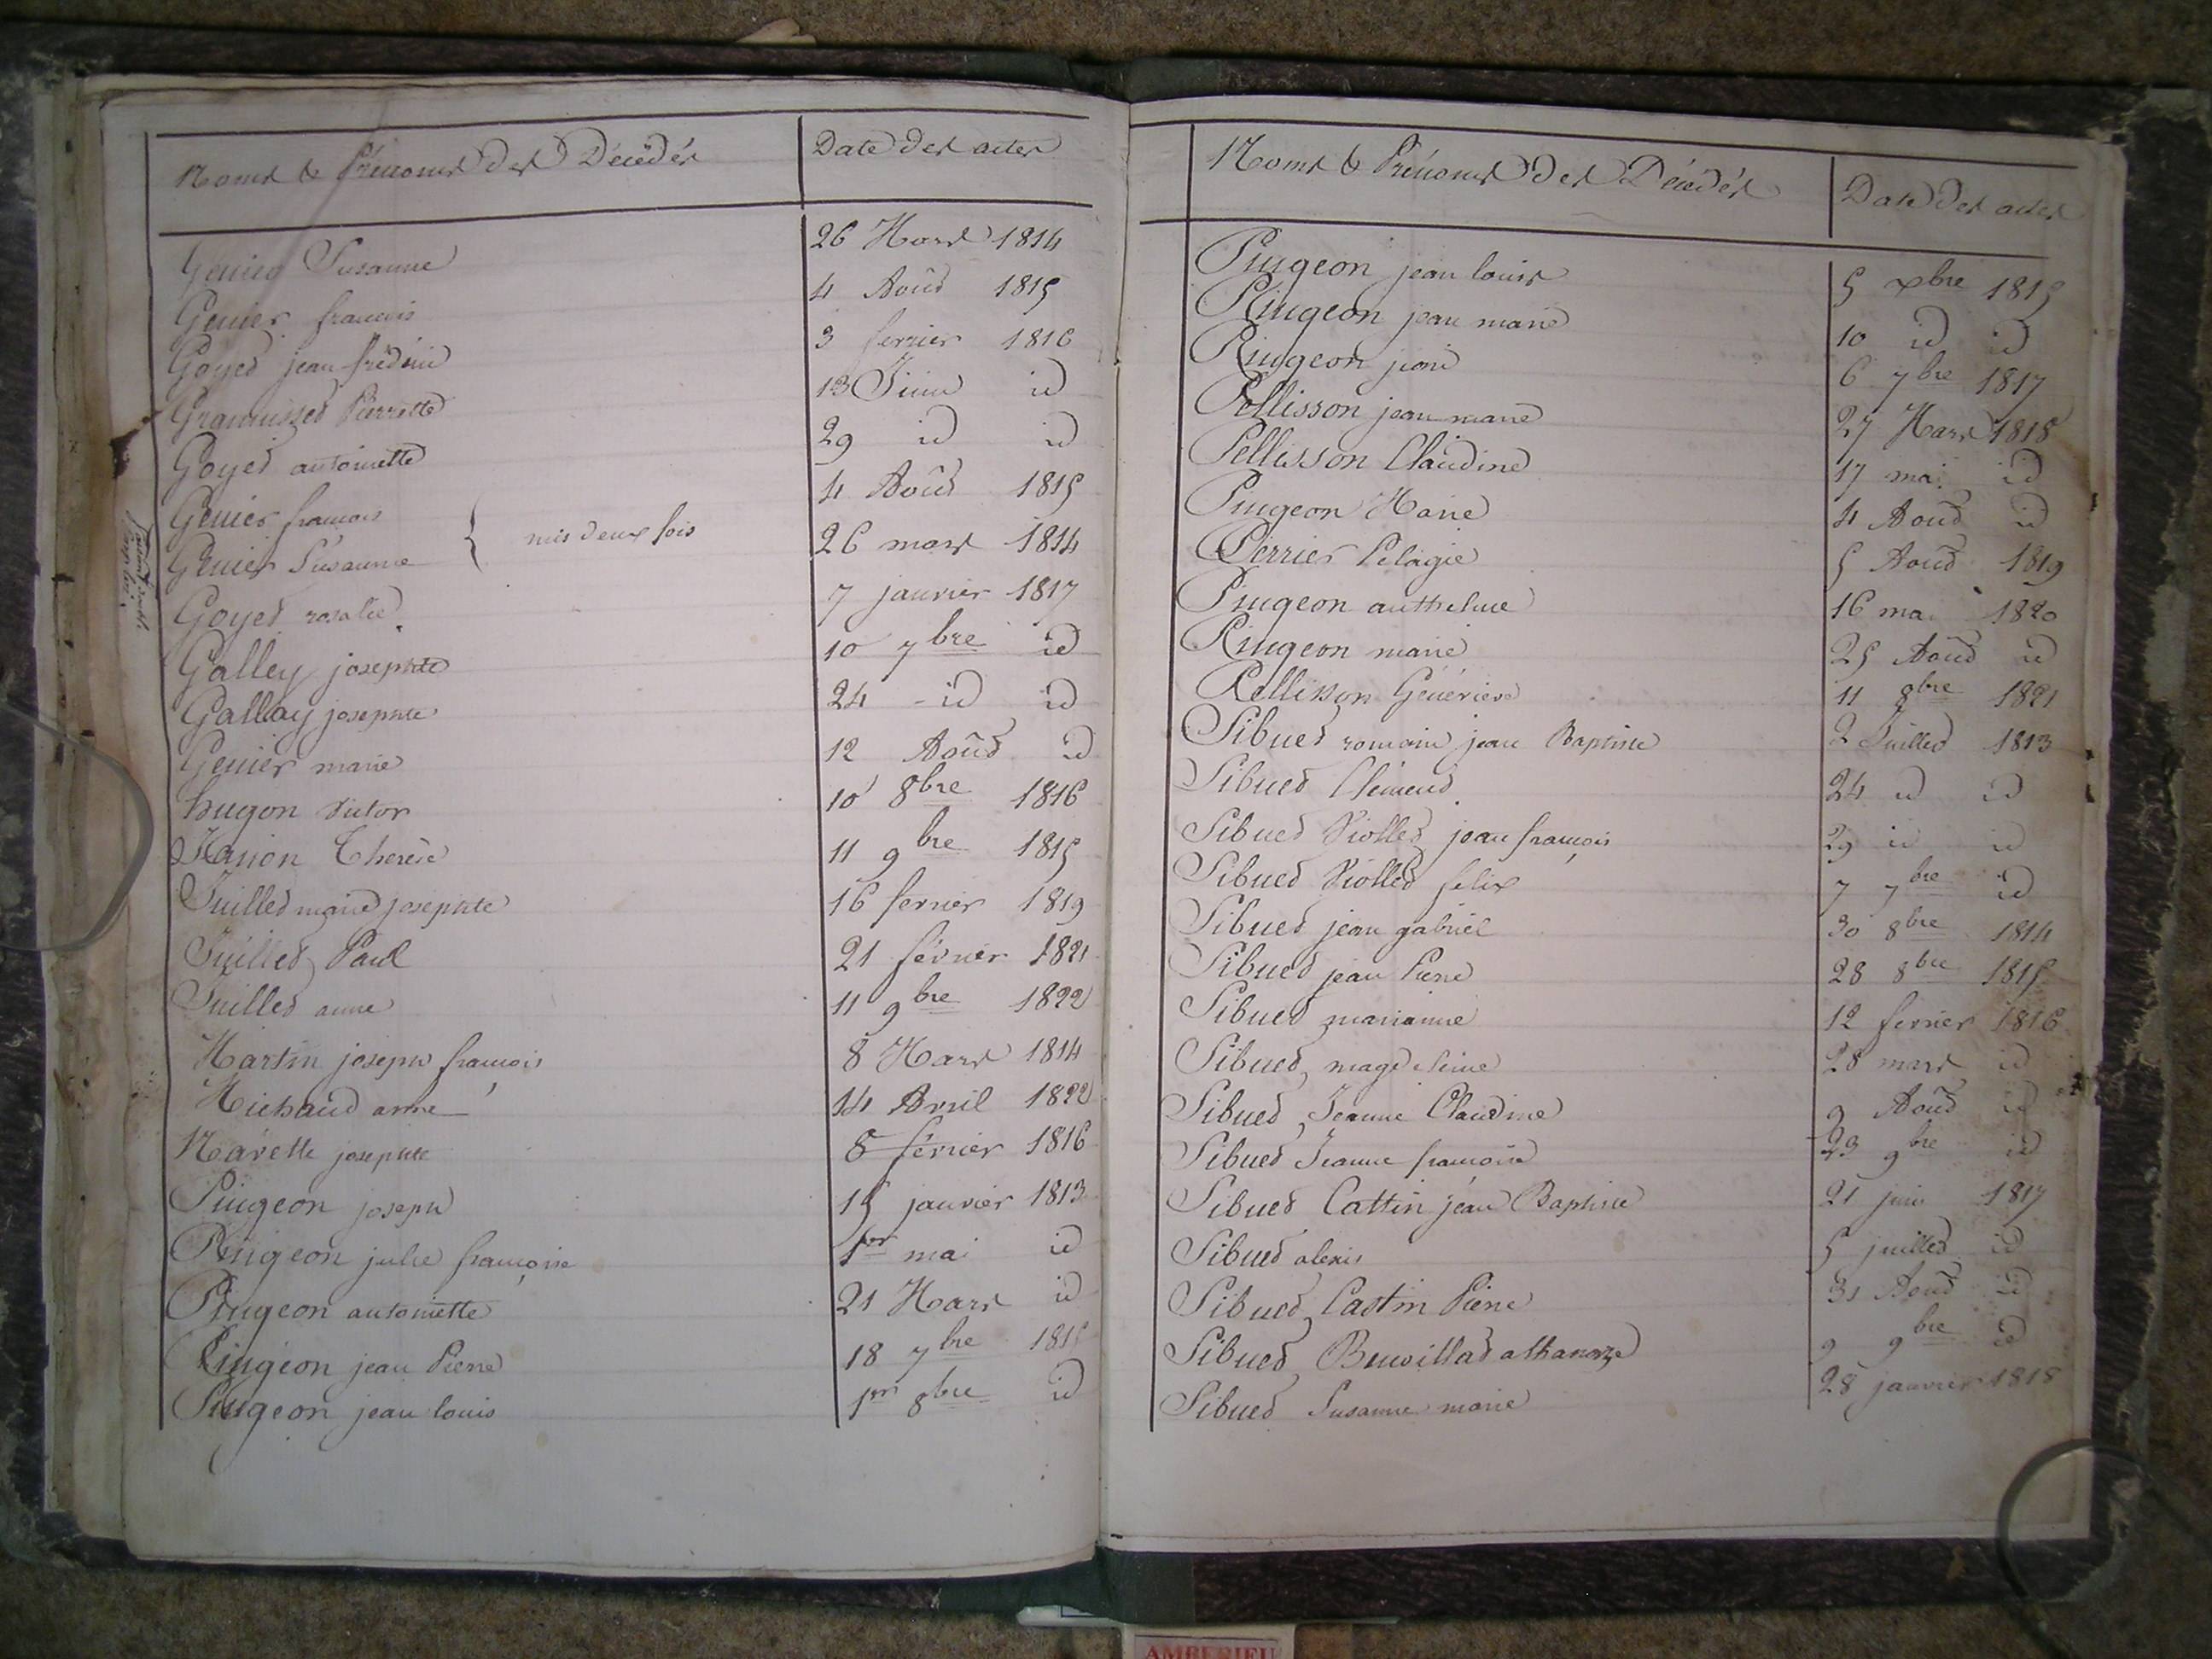 Noms & Prénoms des Décédés Date des actes
Genier Susanne 26 Mars 1814
Genier francois 4 Août 1815
Goyet jean frédéric 3 fevrier 1816
Pierrette 13 Juin id
Goyet antoinette 29 id id
Genier francois 4 Août 1815
Genier Susanne 26 mars 1814
mis deux fois
Goyet rosalie 7 janvier 1817
Galley josephte 10 7bre id
Gallay josephte 24 - id id
Genier marie 12 Août id
hugon victor 10 8bre 1816
Therèse 11 9bre 1815
Juillet marie josephte 16 fevrier 1819
Juillet Paul 21 février 1821
Juillet anne 11 9bre 1822
Martin joseph françois 8 Mars 1814
Michaud anne 14 Avril 1822
Navette josephte 8 février 1816
Pingeon joseph 15 janvier 1813
Pingeon julie françoise 1er mai id
Pingeon antoinette 21 Mars id
Pingeon jean Pierre 18 7bre 1815
Pingeon jean louis 1er 8bre id
Noms & Prénoms des Décédés Date des actes
Pingeon jean louis 5 xbre 1815
Pingeon jean marie 10 id id
Pingeon 6 7bre 1817
Pellisson jean marie 27 Mars 1818
Pellisson Claudine 17 mai id
Pingeon Marie 4 Août id
Perrier Pelagie 5 Août 1819
Pingeon anthelme 16 mai 1820
Pingeon marie 25 Août id
Pellisson Généviève 11 8bre 1821
Sibuet romain jean Baptiste 2 Juillet 1813
Sibuet Clément 24 id id
Sibuet Violet jean françois 29 id id
Sibuet Violet felix 7 7bre id
Sibuet jean gabriel 30 8bre 1814
Sibuet jean Pierre 28 8bre 1815
Sibuet marianne 12 fevrier 1816
Sibuet magdeleine 28 mars id
Sibuet Jeanne Claudine 9 Août id
Sibuet Jeanne francoise 23 9bre id
Sibuet Cattin jean Baptiste 21 juin 1817
Sibuet alexis 5 juillet id
Sibuet Castin Pierre 31 Août id
Sibuet athanaze 9 9bre id
Sibuet Susanne marie 28 janvier 1818
AMBERIEU